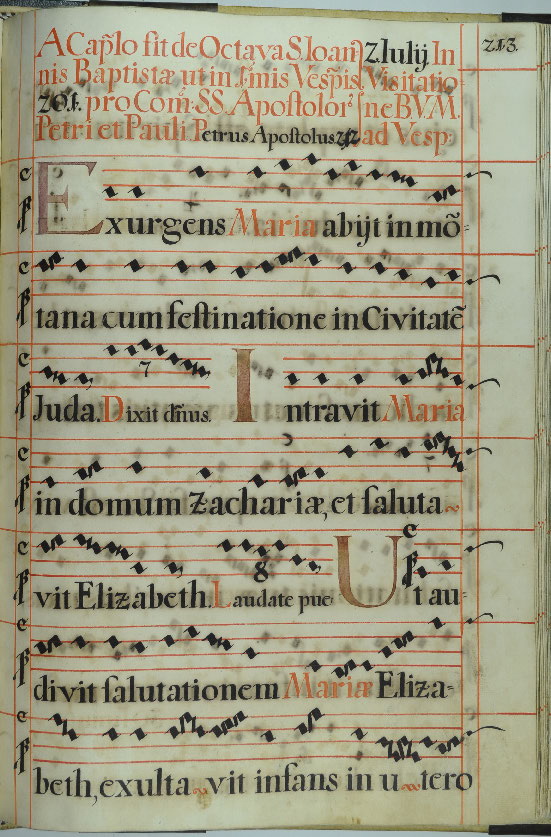 A Cap̃lo fit de Octava S. Ioan 2. Iulij. In
nis Baptistæ ut in .s̃mis Vesp̃is. Visitatio-
pro Com̃: SS. Apostolor ne B V M.
Petri et Pauli. Petrus Apostolus ad Vesp:
Exurgens Maria abijt in mõ-
tana cum festinatione in Civitatẽ
Juda. Dixit dñus. 7 Intravit Maria
in domum Zachariæ, et saluta~
vit Elizabeth. Laudate pue 8 Ut au-
divit salutationem Mariæ Eliza-
beth, exulta~vit infans in u~tero